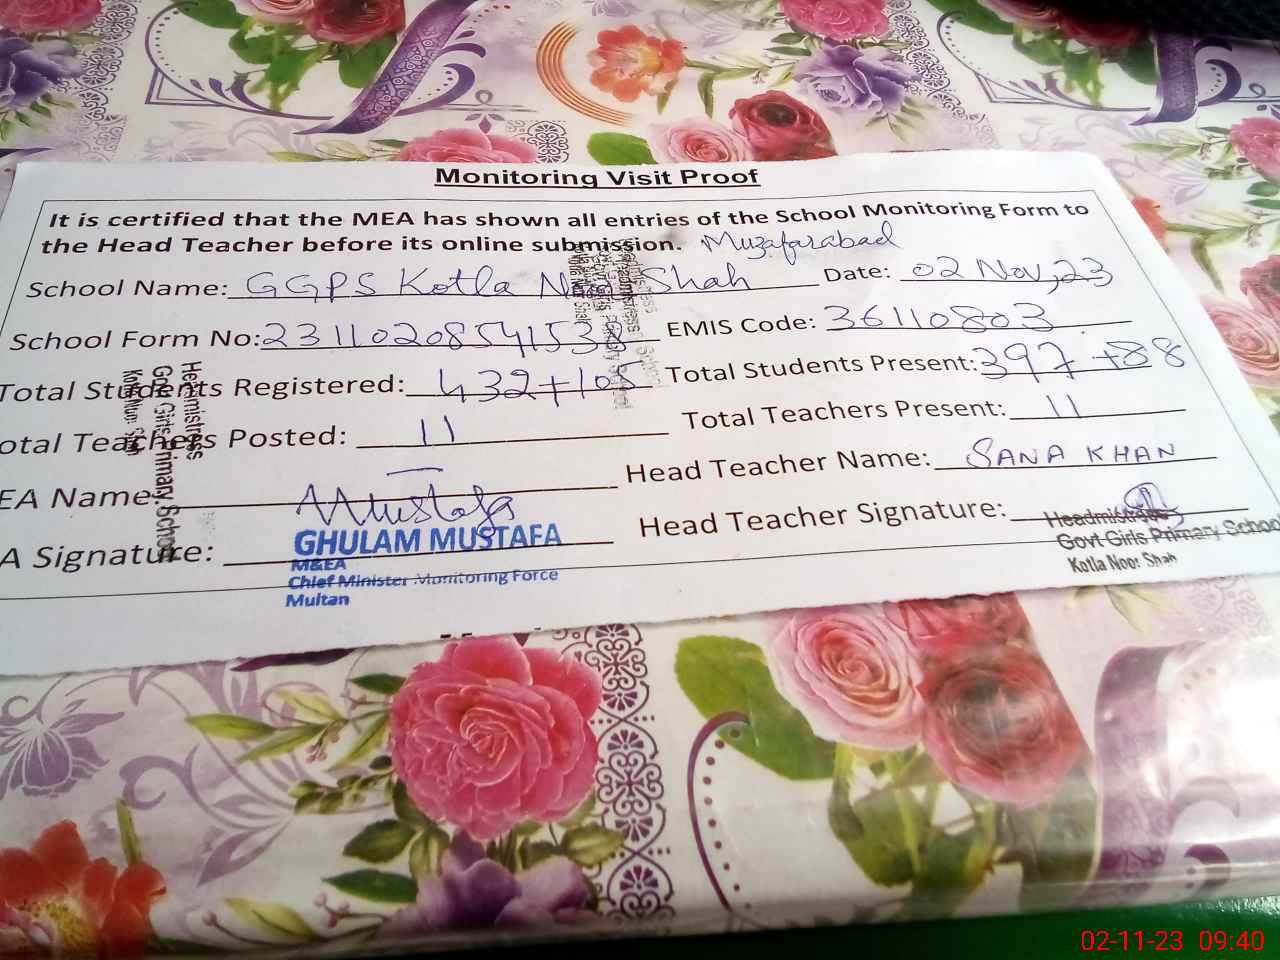 Monitoring Visit Proof
It is certified that the MEA has shown all entries of the School Monitoring Form to
the Head Teacher before its online submission. Muzafarabad
School Name: GGPS Kotla Shah Date: 02 Nov, 23
School Form No: 23110208541538 EMIS Code: 36110803
Total Students Registered: 432+105 Total Students Present: 397 +88
otal Teachers Posted: 11 Total Teachers Present: 11
EA Name: Head Teacher Name: SANA KHAN
A Signature: Mustafa Head Teacher Signature:
GHULAM MUSTAFA
M&EA
Chief Minister Monitoring Force
Multan
Headmistress
Govt Girls Primary School
Kotla Noor Shah
Headmistress
Govt Girls Primary School
02-11-23 09:40